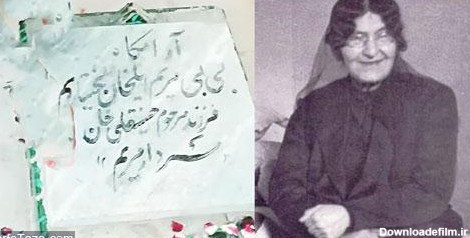 آرامگاه
بی بی مریم ایلخان بختیار
فرزند مرحوم حسینقلی خان
"سردار مریم"
Downloadefilm.ir